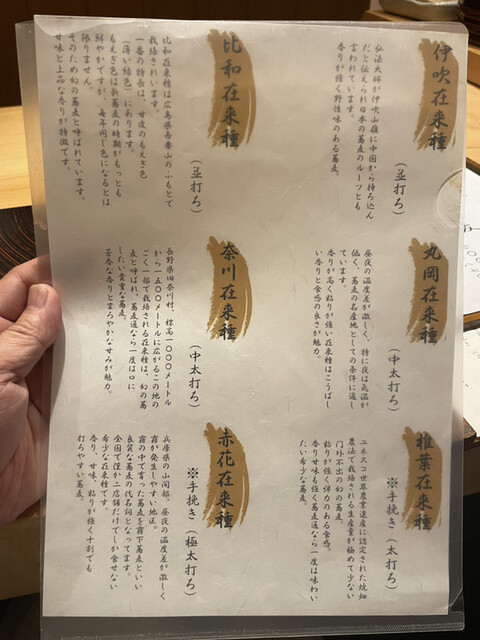 伊吹在来種
(並打ち)
弘法大師が伊吹山嶺に中国から持ち込ん
だと伝えられ日本の蕎麦のルーツとも
言われています。
香りが強く野性味のある蕎麦。
比和在来種
(並打ち)
比和在来種は広島県吾妻山のふもとで
栽培されています。
一番の特長は、甘皮のもえぎ色
(薄い緑色)にあります。
もえぎ色は新蕎麦の時期がもっとも
鮮やかですが、毎年同じ色になるとは
限りません。
そのため幻の蕎麦と呼ばれています。
甘味と上品な香りが特徴です。
丸岡在来種
(中太打ち)
昼夜の温度差が激しく、特に夜は気温が
低く、蕎麦の名産地としての条件に適し
ています。
香りが高く粘りが強い在来種はこうばし
い香りと食感の良さが魅力。
奈川在来種
(中太打ち)
長野県旧奈川村、標高一〇〇〇メートル
から一五〇〇メートルに広がるこの地の
ごく一部で栽培される在来種は、幻の蕎
麦と呼ばれ、蕎麦通なら一度は口に
したい貴重な蕎麦。
芳香な香りとまろやかな甘みが魅力。
椎葉在来種
※手挽き(太打ち)
ユネスコ世界農業遺産に認定された焼畑
農法で栽培される生産量が極めて少ない
門外不出の幻の蕎麦。
粘りが強く弾力のある食感。
香り甘味も強く蕎麦通なら一度は味わい
たい希少な蕎麦。
赤花在来種
※手挽き(極太打ち)
兵庫県の山間部、昼夜の温度差が激しく
霧が発生しやすい地区。
霧の中で育った蕎麦を霧下蕎麦といい
良質な蕎麦の代名詞となってます。
全国で僅か一店舗だけでしか食せない
希少な在来種です。
香り、甘味、粘りが強く十割でも
打ちやすい蕎麦。